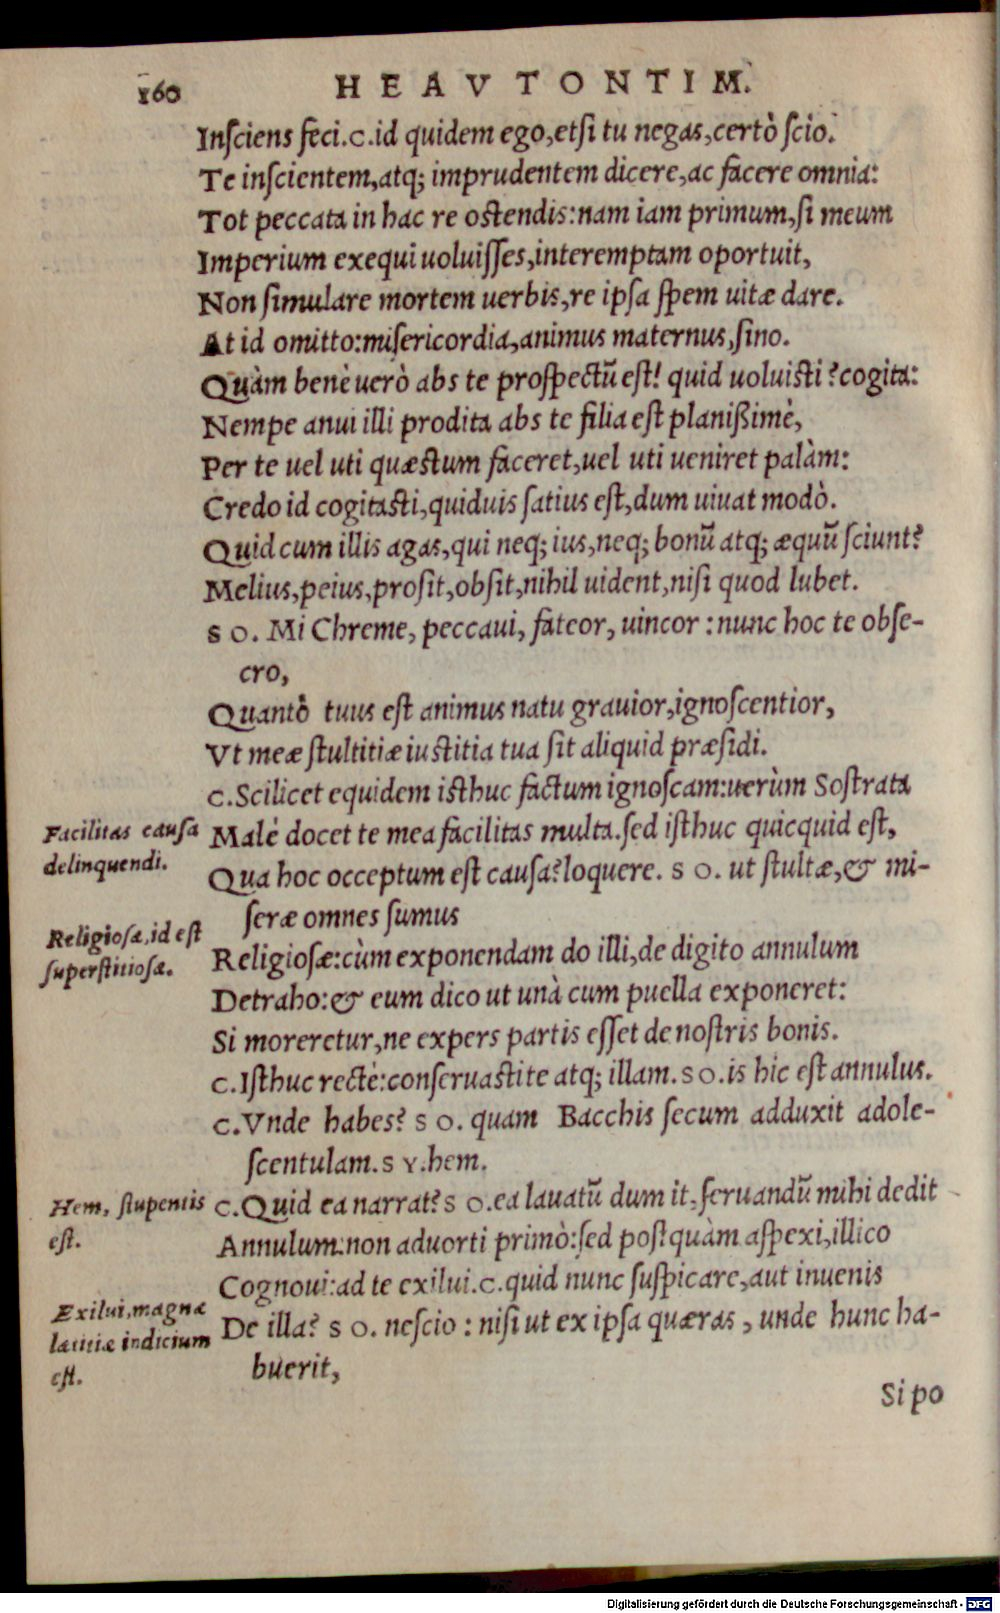 160 HEAVTONTIM.
Inſciens feci.C.id quidem ego,etſi tu negas,certò ſcio.
Te inſcientem,atq; imprudentem dicere,ac facere omnia:
Tot peccata in hac re oſtendis:nam iam primum,ſi meum
Imperium exequi uoluiſſes,interemptam oportuit,
Non ſimulare mortem uerbis,re ipſa ſpem uitæ dare.
At id omitto:miſericordia,animus maternus,ſino.
Quàm benè uerò abs te proſpectũ eſt! quid uoluiſti?cogita:
Nempe anui illi prodita abs te filia eſt planiſsimè,
Per te uel uti quæſtum faceret,uel uti ueniret palàm:
Credo id cogitaſti,quiduis ſatius eſt,dum uiuat modò.
Quid cum illis agas,qui neq; ius,neq; bonũ atq; æquũ ſciunt?
Melius,peius,proſit,obſit,nihil uident,niſi quod lubet.
SO. Mi Chreme, peccaui, fateor, uincor : nunc hoc te obſe-
cro,
Quantò tuus eſt animus natu grauior,ignoſcentior,
Vt meæ ſtultitiæ iuſtitia tua ſit aliquid præſidi.
C.Scilicet equidem iſthuc factum ignoſcam:uerùm Soſtrata
Facilitas cauſa
delinquendi.
Malè docet te mea facilitas multa.ſed iſthuc quicquid eſt,
Qua hoc occeptum eſt cauſa?loquere. SO. ut ſtultæ,& mi-
ſeræ omnes ſumus
Religioſæ,id eſt
ſuperſtitioſæ.
Religioſæ:cùm exponendam do illi,de digito annulum
Detraho:& eum dico ut unà cum puella exponeret:
Si moreretur,ne expers partis eſſet de noſtris bonis.
C.Iſthuc rectè:conſeruaſti te atq; illam.SO.is hic eſt annulus.
C.Vnde habes? SO. quam Bacchis ſecum adduxit adole-
ſcentulam.SY.hem.
Hem, ſtupentis
eſt.
C.Quid ea narrat?SO.ea lauatũ dum it,ſeruandũ mihi dedit
Annulum:non aduorti primò:ſed poſtquàm aſpexi,illico
Cognoui:ad te exilui.C.quid nunc ſuſpicare,aut inuenis
Exilui,magnæ
lætitiæ indicium
eſt.
De illa? SO. neſcio : niſi ut ex ipſa quæras , unde hunc ha-
buerit,
Si po
Digitalisierung gefördert durch die Deutsche Forschungsgemeinschaft - DFG